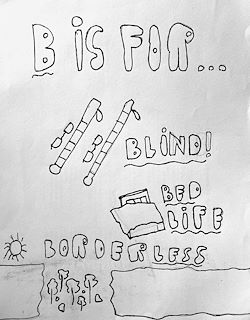 B iS FOR...
BLiND!
BED
LiFE
BORDERLESS